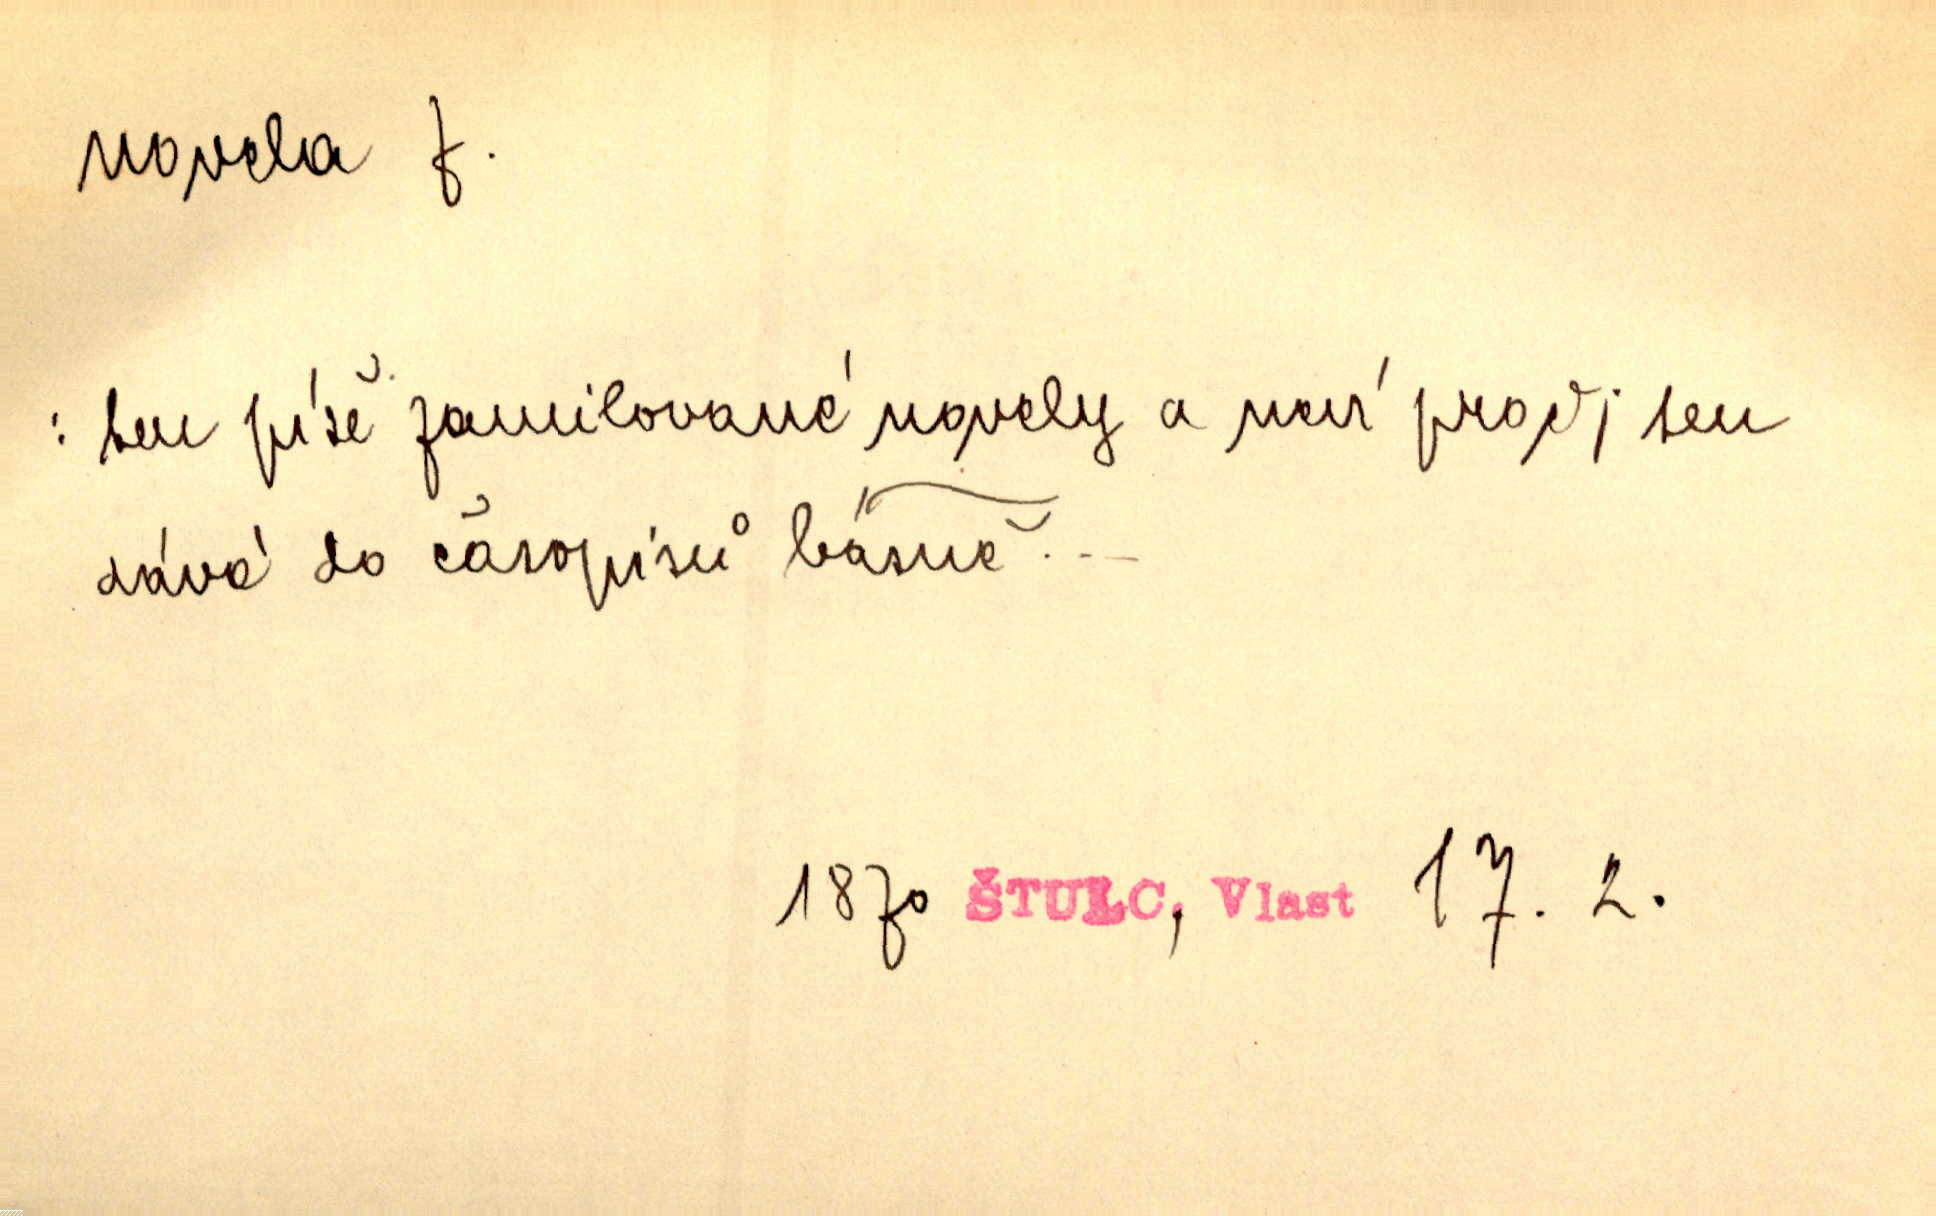 novela f.
: ten píše zamilované novely a není prost; ten
dává do časopisů básně...
1870 ŠTULC, Vlast 17. 2.